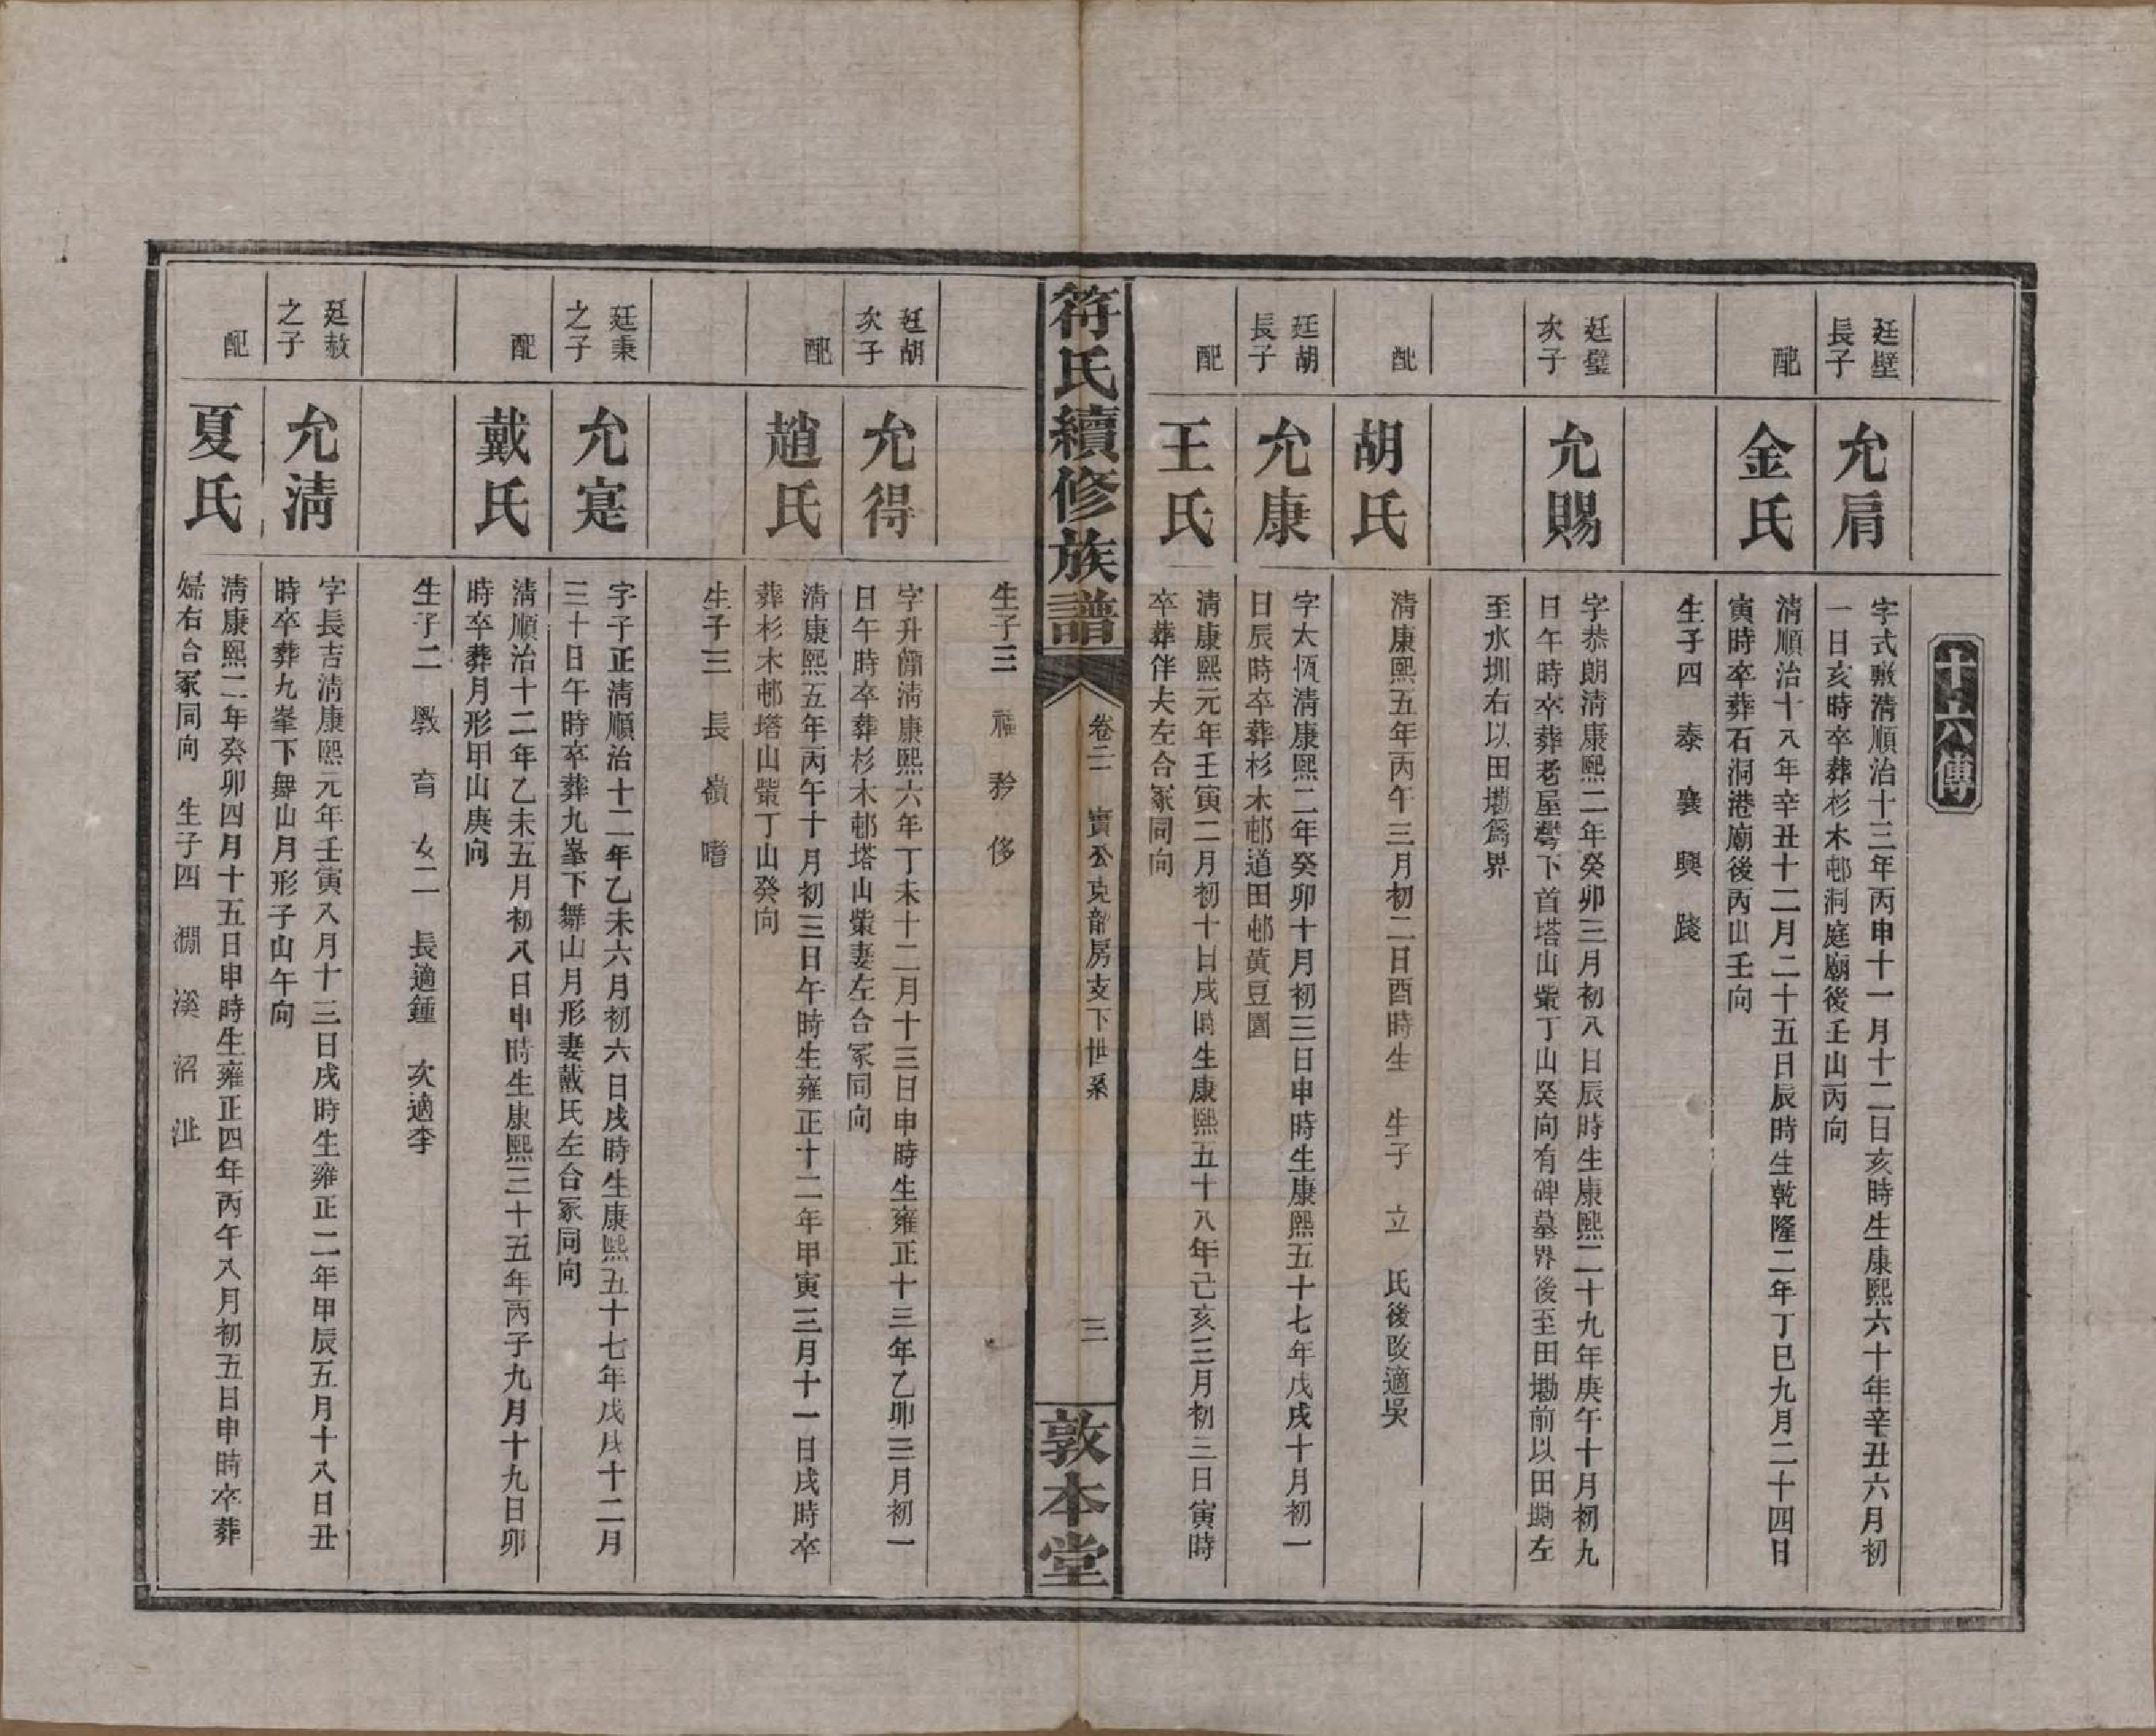 十六傳
廷壁
長子
允肩
字式敷清順治十三年丙申十一月十二日亥時生康熙六十年辛丑六月初
一日亥時卒葬杉木邨洞庭廟後壬山丙向
配
金氏
清順治十八年辛丑十二月二十五日辰時生乾隆二年丁巳九月二十四日
寅時卒葬石洞港廟後丙山壬向
生子四 泰 襄 興 踐
廷璧
次子
允賜
字恭朗清康熙二年癸卯三月初八日辰時生康熙二十九年庚午十月初九
日午時卒葬老屋灣下首塔山柴丁山癸向有碑墓界後至田墈前以田墈左
至水圳右以田墈爲界
配
胡氏
清康熙五年丙午三月初二日酉時生 生子 立 氏後改適吳
廷胡
長子
允康
字大恆清康熙二年癸卯十月初三日申時生康熙五十七年戊戌十月初一
日辰時卒葬杉木邨道田邨黃豆園
配
王氏
清康熙元年壬寅二月初十日戌時生康熙五十八年己亥三月初三日寅時
卒葬伴夫左合冢同向
符氏續修族譜
卷二 實公克韶房支下世系
三
敦本堂
生子三 福 矜 侈
廷胡
次子
允得
字升簡清康熙六年丁未十二月十三日申時生雍正十三年乙卯三月初一
日午時卒葬杉木邨塔山柴妻左合冢同向
配
趙氏
清康熙五年丙午十月初三日午時生雍正十二年甲寅三月十一日戌時卒
葬杉木邨塔山柴丁山癸向
生子三 長 嶺 嗜
廷秉
之子
允寔
字子正清順治十二年乙未六月初六日戌時生康熙五十七年戊戌十二月
三十日午時卒葬九峯下舞山月形妻戴氏左合冢同向
配
戴氏
清順治十二年乙未五月初八日申時生康熙三十五年丙子九月十九日卯
時卒葬月形甲山庚向
生子二 斅 育 女二 長適鍾 次適李
廷赦
之子
允清
字長吉清康熙元年壬寅八月十三日戌時生雍正二年甲辰五月十八日丑
時卒葬九峯下舞山月形子山午向
配
夏氏
清康熙二年癸卯四月十五日申時生雍正四年丙午八月初五日申時卒葬
婦右合冢同向 生子四 淵 溪 沼 沚